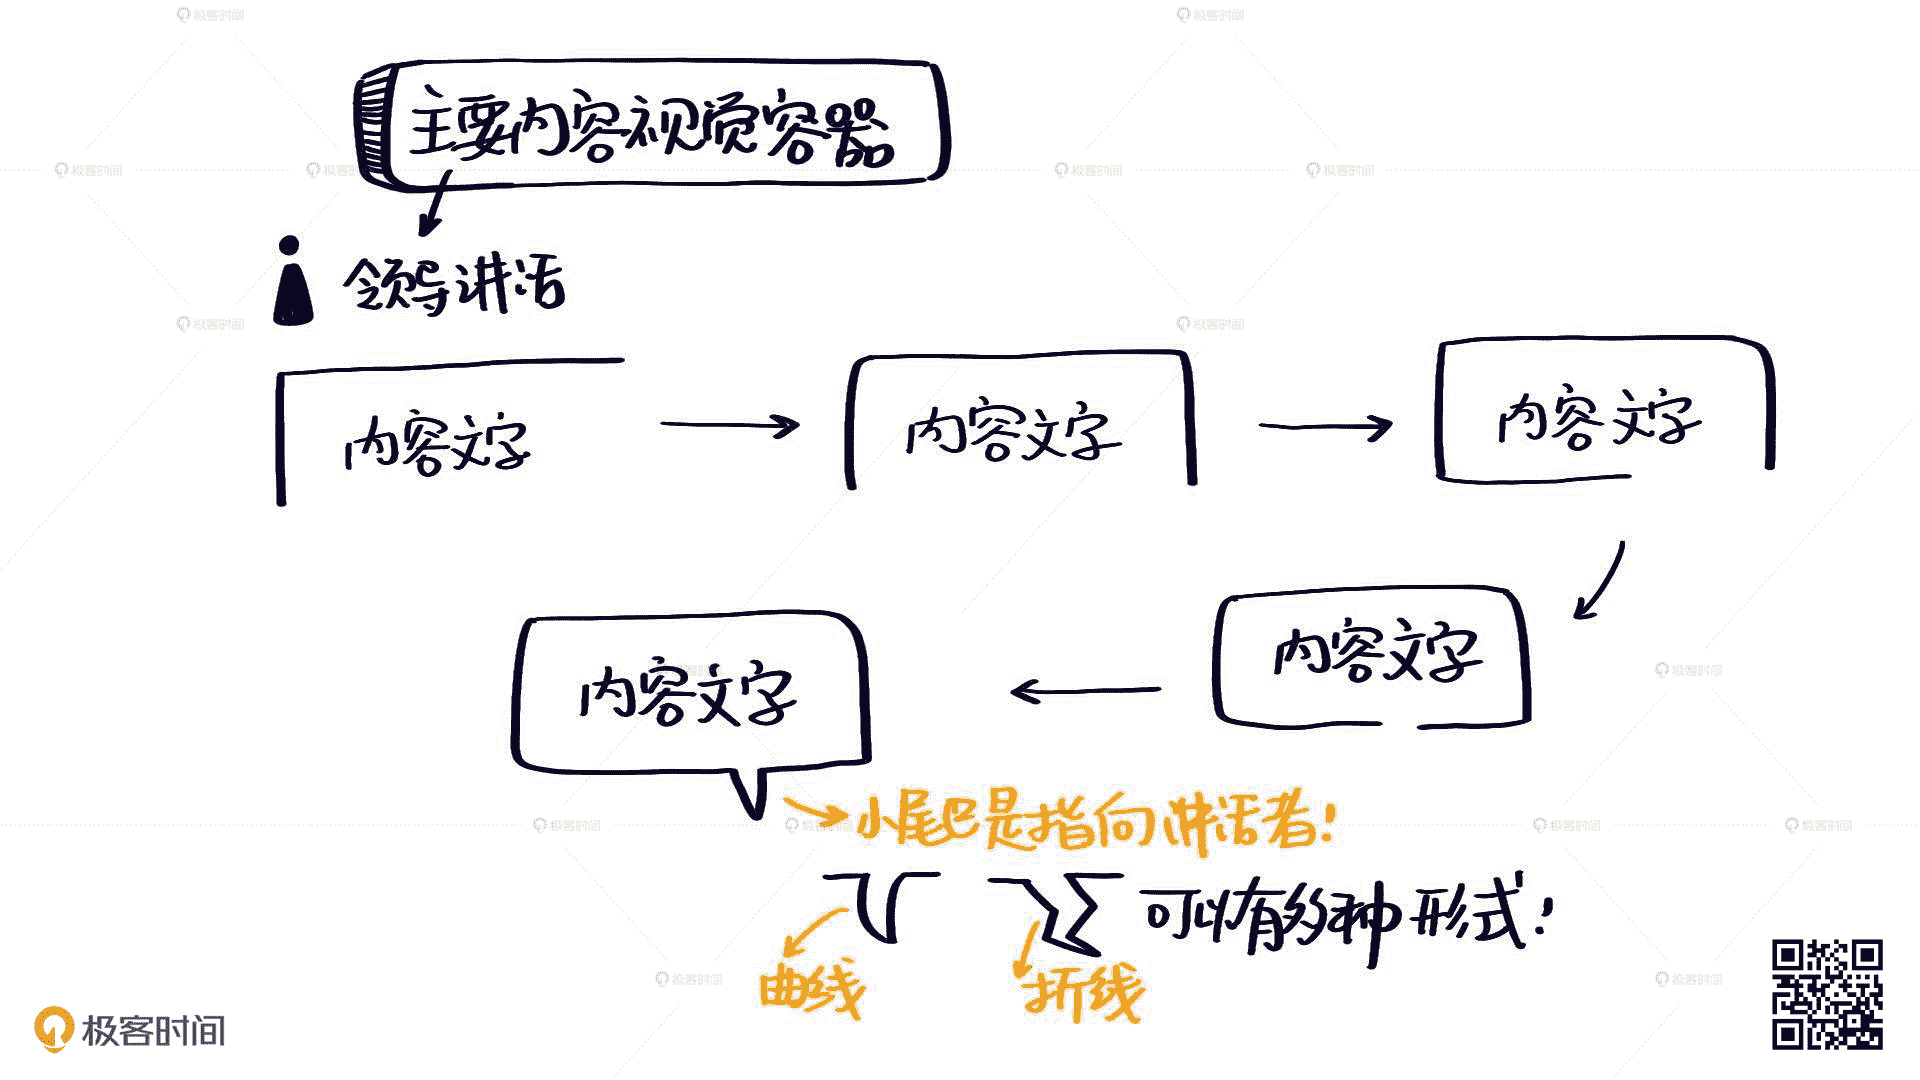 主要内容视觉容器
领导讲话
内容文字
内容文字
内容文字
内容文字
内容文字
小尾巴是指向讲话者!
可以有多种形式!
曲线
折线
极客时间